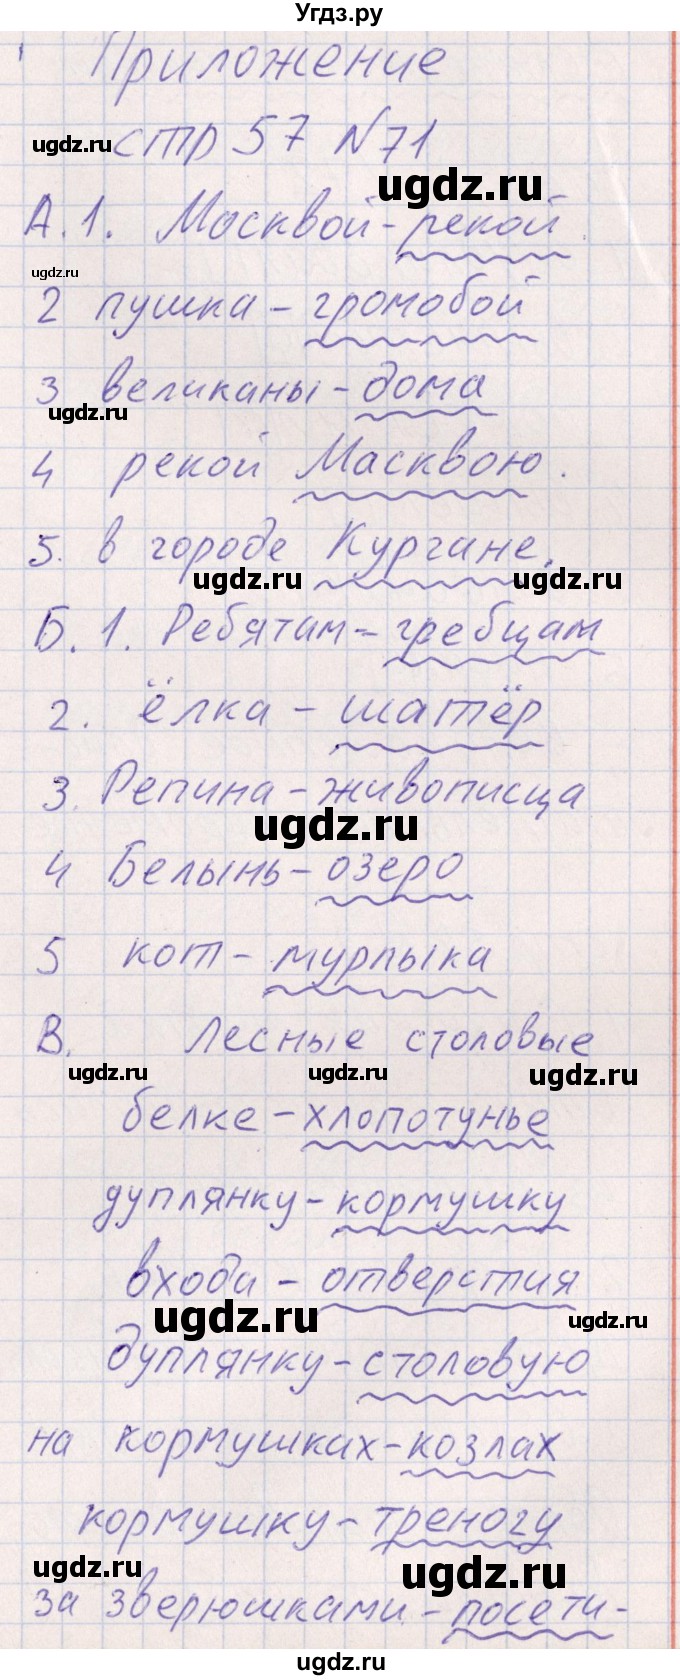 Угдз.ру
Приложение
ugdz.ru стр 57 №71
ugdz.ru
А.1. Москвой-рекой.
ugdz.ru
2 пушка - громобой
3 великаны - дома
ugdz.ru
4 рекой Масквою.
5. в городе Кургане.
ugdz.ru ugdz.ru
Б. 1. Ребятам - гребцам
2. ёлка - шатёр
3. Репина - живописца
ugdz.ru
4 Белынь - озеро
5 кот - мурлыка
В. Лесные столовые
ugdz.ru ugdz.ru ugdz.ru
белке - хлопотунье
дуплянку - кормушку
входа - отверстия
ugdz.ru ugdz.ru
дуплянку - столовую
на кормушках - козлах
кормушку - треногу
ugdz.ru ugdz.ru
за зверюшками - посети-
ugdz.ru